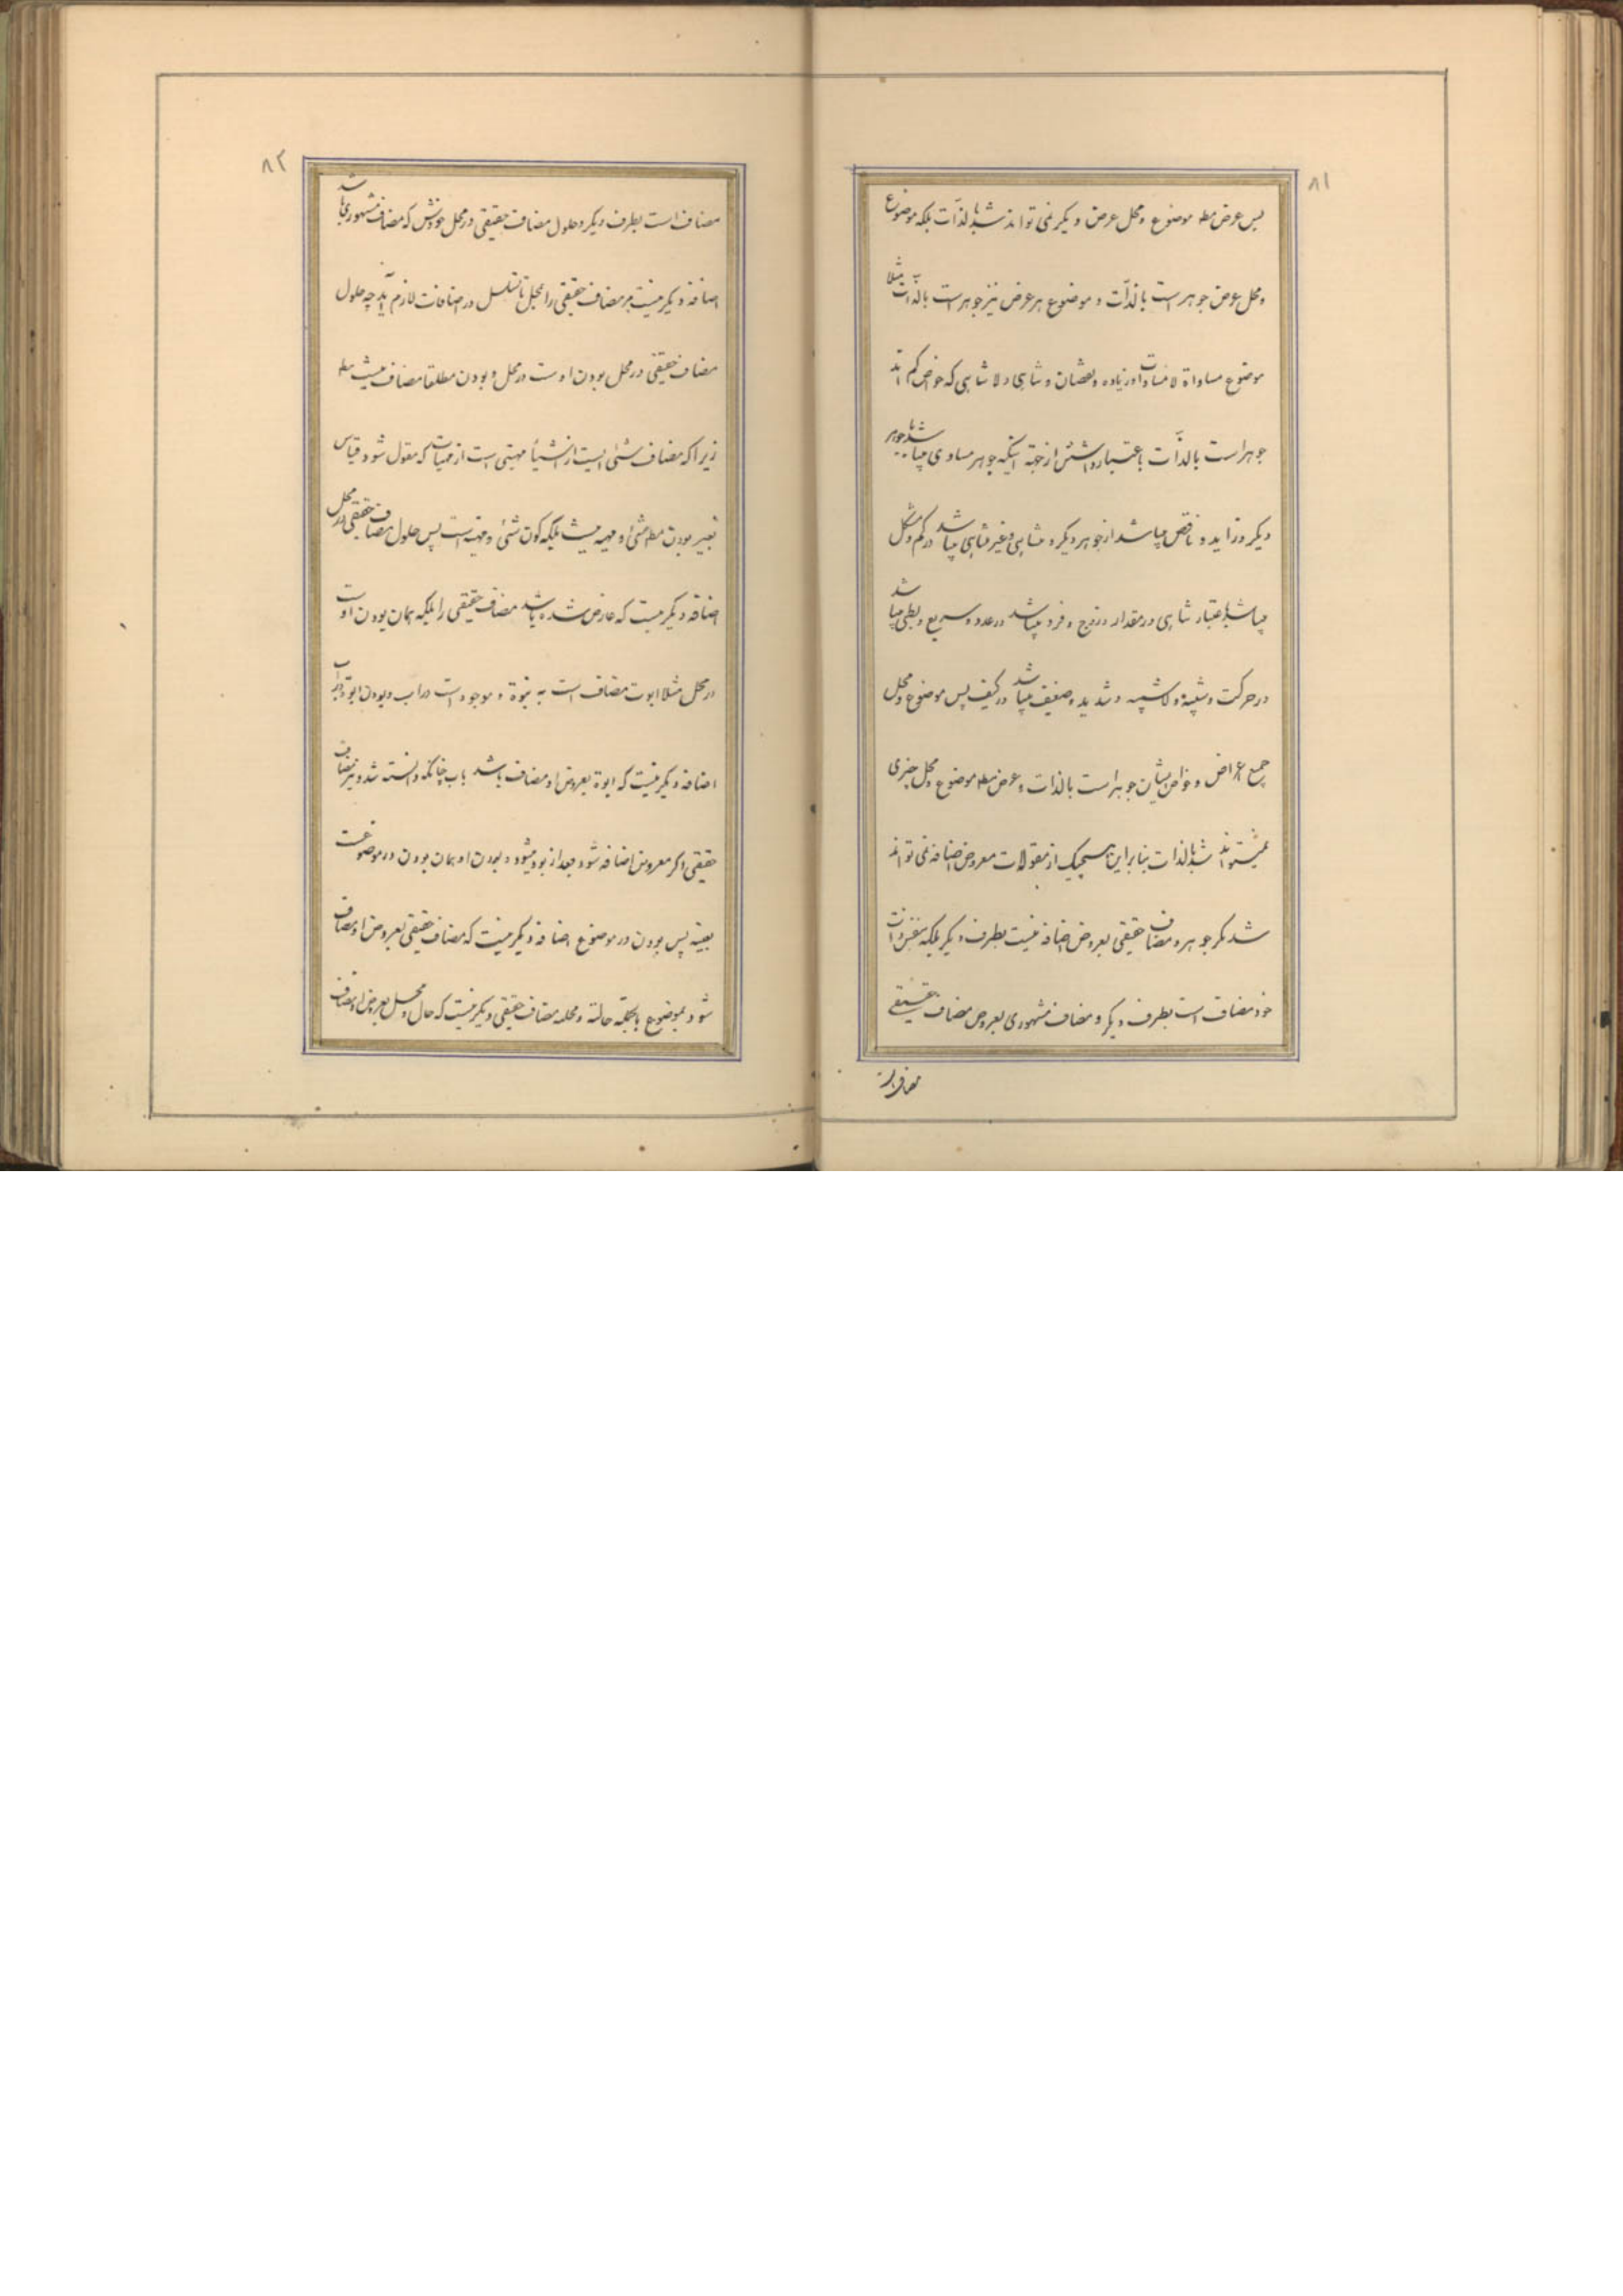 ۸۱
پس عرض مطلقا موضوع و محل عرض دیگر نمی تواند شد بالذآت بلکه موضوع
و محل عرض جوهر است بالذآت و موضوع هر عرض نیز جوهر است بالذآت مثلا
موضوع مساواة لامساوات و زیاده و نقصان و تناهی و لا تناهی که خواص کم اند
جوهر است بالذآت باعتبار داشتن از جهة اینکه جوهر مساوی میباشد با جوهر
دیگر و زاید و ناقص میباشد از جوهر دیگر و متناهی و غیر متناهی میباشد در کم و شکل
میباشد باعتبار تناهی در مقدار و زوج و فرد میباشد در عدد و سریع و بطی میباشد
در حرکت و شبیه و لاشبیه و شدید و ضعیف میباشد در کیف پس موضوع و محل
جمیع اعراض و خواص ایشان جوهر است بالذات و عرض مطلقا موضوع و محل چیزی
نمیتواند شد بالذات بنابراین هیچیک از مقولات معروض اضافه نمی تواند
شد مگر جوهر و مضاف حقیقی بعروض اضافه نیست بطرف دیگر بلکه بنفس ذات
خود مضاف است بطرف دیگر و مضاف مشهوری بعروض مضاف حقیقی
مضاف است
۸۲
مضاف است بطرف دیگر و حلول مضاف حقیقی در محل خودش که مضاف مشهوری باشد
اضافه دیگر نیست مر مضاف حقیقی را بمحل تا تسلسل در اضافات لازم آید چه حلول
مضاف حقیقی در محل بودن اوست در محل و بودن مطلقا مضاف نیست
زیرا که مضاف شئی ایست از اشیأ مهیتی است از مهیات که مقول شود بقیاس
بغیر بودن مطلقا شئ و مهیه نیست بلکه کون شئی و مهیه است پس حلول مضاف حقیقی در محل
اضافه دیگر نیست که عارض شده باشد مضاف حقیقی را بلکه همان بودن اوست
در محل مثلا ابوت مضاف است به بنوة و موجود است در اب و بودن ابوة در اب
اضافه دیگر نیست که ابوة بعروض او مضاف باشد باب چنانکه دانسته شد و نیز مضاف
حقیقی اگر معروض اضافه شود بعد از بود میشود و بودن او همان بودن در موضوعست
بعینه پس بودن در موضوع اضافه دیگر نیست که مضاف حقیقی بعروض او مضاف
شود بموضوع بالجمله حالیة و محلیه مضاف حقیقی دیگر نیست که حال و محل بعروض او مضاف